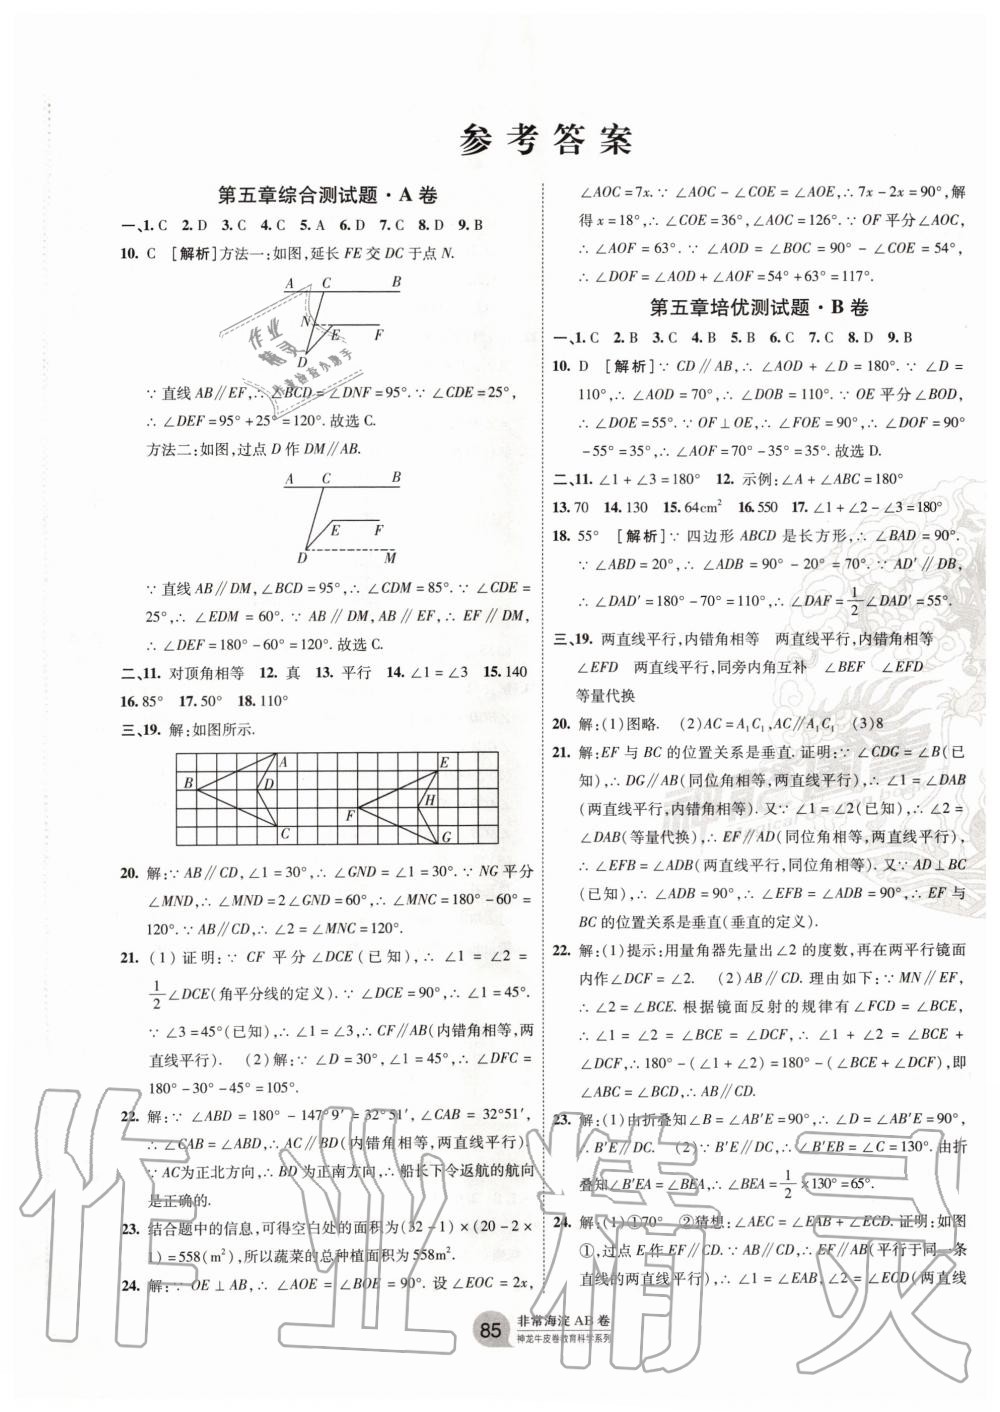 参考答案
第五章综合测试题·A卷
一、1. C 2. D 3. C 4. C 5. A 6. D 7. C 8. D 9. B
10. C [解析]方法一:如图,延长 FE 交 DC 于点 N.
A C B
N E F
D
∵ 直线 AB∥EF,∴ ∠BCD = ∠DNF = 95°. ∵ ∠CDE = 25°,
∴ ∠DEF = 95° + 25° = 120°. 故选 C.
方法二:如图,过点 D 作 DM∥AB.
A C B
E F
D M
∵ 直线 AB∥DM,∠BCD = 95°,∴ ∠CDM = 85°. ∵ ∠CDE =
25°,∴ ∠EDM = 60°. ∵ AB∥DM,AB∥EF,∴ EF∥DM,
∴ ∠DEF = 180° - 60° = 120°. 故选 C.
二、11. 对顶角相等 12. 真 13. 平行 14. ∠1 = ∠3 15. 140
16. 85° 17. 50° 18. 110°
三、19. 解:如图所示.
A E
B D H
F
C G
20. 解:∵ AB∥CD,∠1 = 30°,∴ ∠GND = ∠1 = 30°. ∵ NG 平分
∠MND,∴ ∠MND = 2∠GND = 60°,∴ ∠MNC = 180° - 60° =
120°. ∵ AB∥CD,∴ ∠2 = ∠MNC = 120°.
21. (1) 证明:∵ CF 平分 ∠DCE (已知),∴ ∠1 = ∠2 =
1/2∠DCE(角平分线的定义). ∵ ∠DCE = 90°,∴ ∠1 = 45°.
∵ ∠3 = 45°(已知),∴ ∠1 = ∠3,∴ CF∥AB(内错角相等,两
直线平行). (2) 解:∵ ∠D = 30°,∠1 = 45°,∴ ∠DFC =
180° - 30° - 45° = 105°.
22. 解:∵ ∠ABD = 180° - 147°9′ = 32°51′,∠CAB = 32°51′,
∴ ∠CAB = ∠ABD,∴ AC∥BD(内错角相等,两直线平行).
∵ AC为正北方向,∴ BD 为正南方向,∴ 船长下令返航的航向
是正确的.
23. 结合题中的信息,可得空白处的面积为(32 - 1) × (20 - 2 ×
1) = 558(m²),所以蔬菜的总种植面积为558m².
24. 解:∵ OE⊥AB,∴ ∠AOE = ∠BOE = 90°. 设 ∠EOC = 2x,
∠AOC = 7x. ∵ ∠AOC - ∠COE = ∠AOE,∴ 7x - 2x = 90°,解
得 x = 18°,∴ ∠COE = 36°,∠AOC = 126°. ∵ OF 平分∠AOC,
∴ ∠AOF = 63°. ∵ ∠AOD = ∠BOC = 90° - ∠COE = 54°,
∴ ∠DOF = ∠AOD + ∠AOF = 54° + 63° = 117°.
第五章培优测试题·B卷
一、1. C 2. B 3. C 4. B 5. B 6. C 7. C 8. D 9. B
10. D [解析]∵ CD∥AB,∴ ∠AOD + ∠D = 180°. ∵ ∠D =
110°,∴ ∠AOD = 70°,∴ ∠DOB = 110°. ∵ OE 平分∠BOD,
∴ ∠DOE = 55°. ∵ OF⊥OE,∴ ∠FOE = 90°,∴ ∠DOF = 90°
- 55° = 35°,∴ ∠AOF = 70° - 35° = 35°. 故选 D.
二、11. ∠1 + ∠3 = 180° 12. 示例:∠A + ∠ABC = 180°
13. 70 14. 130 15. 64cm² 16. 550 17. ∠1 + ∠2 - ∠3 = 180°
18. 55° [解析]∵ 四边形 ABCD 是长方形,∴ ∠BAD = 90°.
∵ ∠ABD = 20°,∴ ∠ADB = 90° - 20° = 70°. ∵ AD′∥DB,
∴ ∠DAD′ = 180° - 70° = 110°,∴ ∠DAF = 1/2∠DAD′ = 55°.
三、19. 两直线平行,内错角相等 两直线平行,内错角相等
∠EFD 两直线平行,同旁内角互补 ∠BEF ∠EFD
等量代换
20. 解:(1)图略. (2) AC = A₁C₁,AC∥A₁C₁ (3) 8
21. 解:EF 与 BC 的位置关系是垂直. 证明:∵ ∠CDG = ∠B(已
知),∴ DG∥AB(同位角相等,两直线平行),∴ ∠1 = ∠DAB
(两直线平行,内错角相等). 又∵ ∠1 = ∠2(已知),∴ ∠2 =
∠DAB(等量代换),∴ EF∥AD(同位角相等,两直线平行),
∴ ∠EFB = ∠ADB(两直线平行,同位角相等). 又∵ AD⊥BC
(已知),∴ ∠ADB = 90°,∴ ∠EFB = ∠ADB = 90°,∴ EF 与
BC 的位置关系是垂直(垂直的定义).
22. 解:(1)提示:用量角器先量出∠2 的度数,再在两平行镜面
内作∠DCF = ∠2. (2) AB∥CD. 理由如下:∵ MN∥EF,
∴ ∠2 = ∠BCE. 根据镜面反射的规律有∠FCD = ∠BCE,
∴ ∠1 = ∠2 = ∠BCE = ∠DCF,∴ ∠1 + ∠2 = ∠BCE +
∠DCF,∴ 180° - (∠1 + ∠2) = 180° - (∠BCE + ∠DCF),即
∠ABC = ∠BCD,∴ AB∥CD.
23. 解:(1)由折叠知∠B = ∠AB′E = 90°,∴ ∠D = ∠AB′E = 90°,
∴ B′E∥DC. (2)∵ B′E∥DC,∴ ∠B′EB = ∠C = 130°. 由折
叠知∠B′EA = ∠BEA,∴ ∠BEA = 1/2 × 130° = 65°.
24. 解:(1)①70° ②猜想:∠AEC = ∠EAB + ∠ECD. 证明:如图
①,过点 E 作 EF∥CD. ∵ AB∥CD,∴ EF∥AB(平行于同一条
直线的两直线平行),∴ ∠1 = ∠EAB,∠2 = ∠ECD(两直线
85 非常海淀 AB 卷
神龙牛皮卷教育科学系列
作业精灵